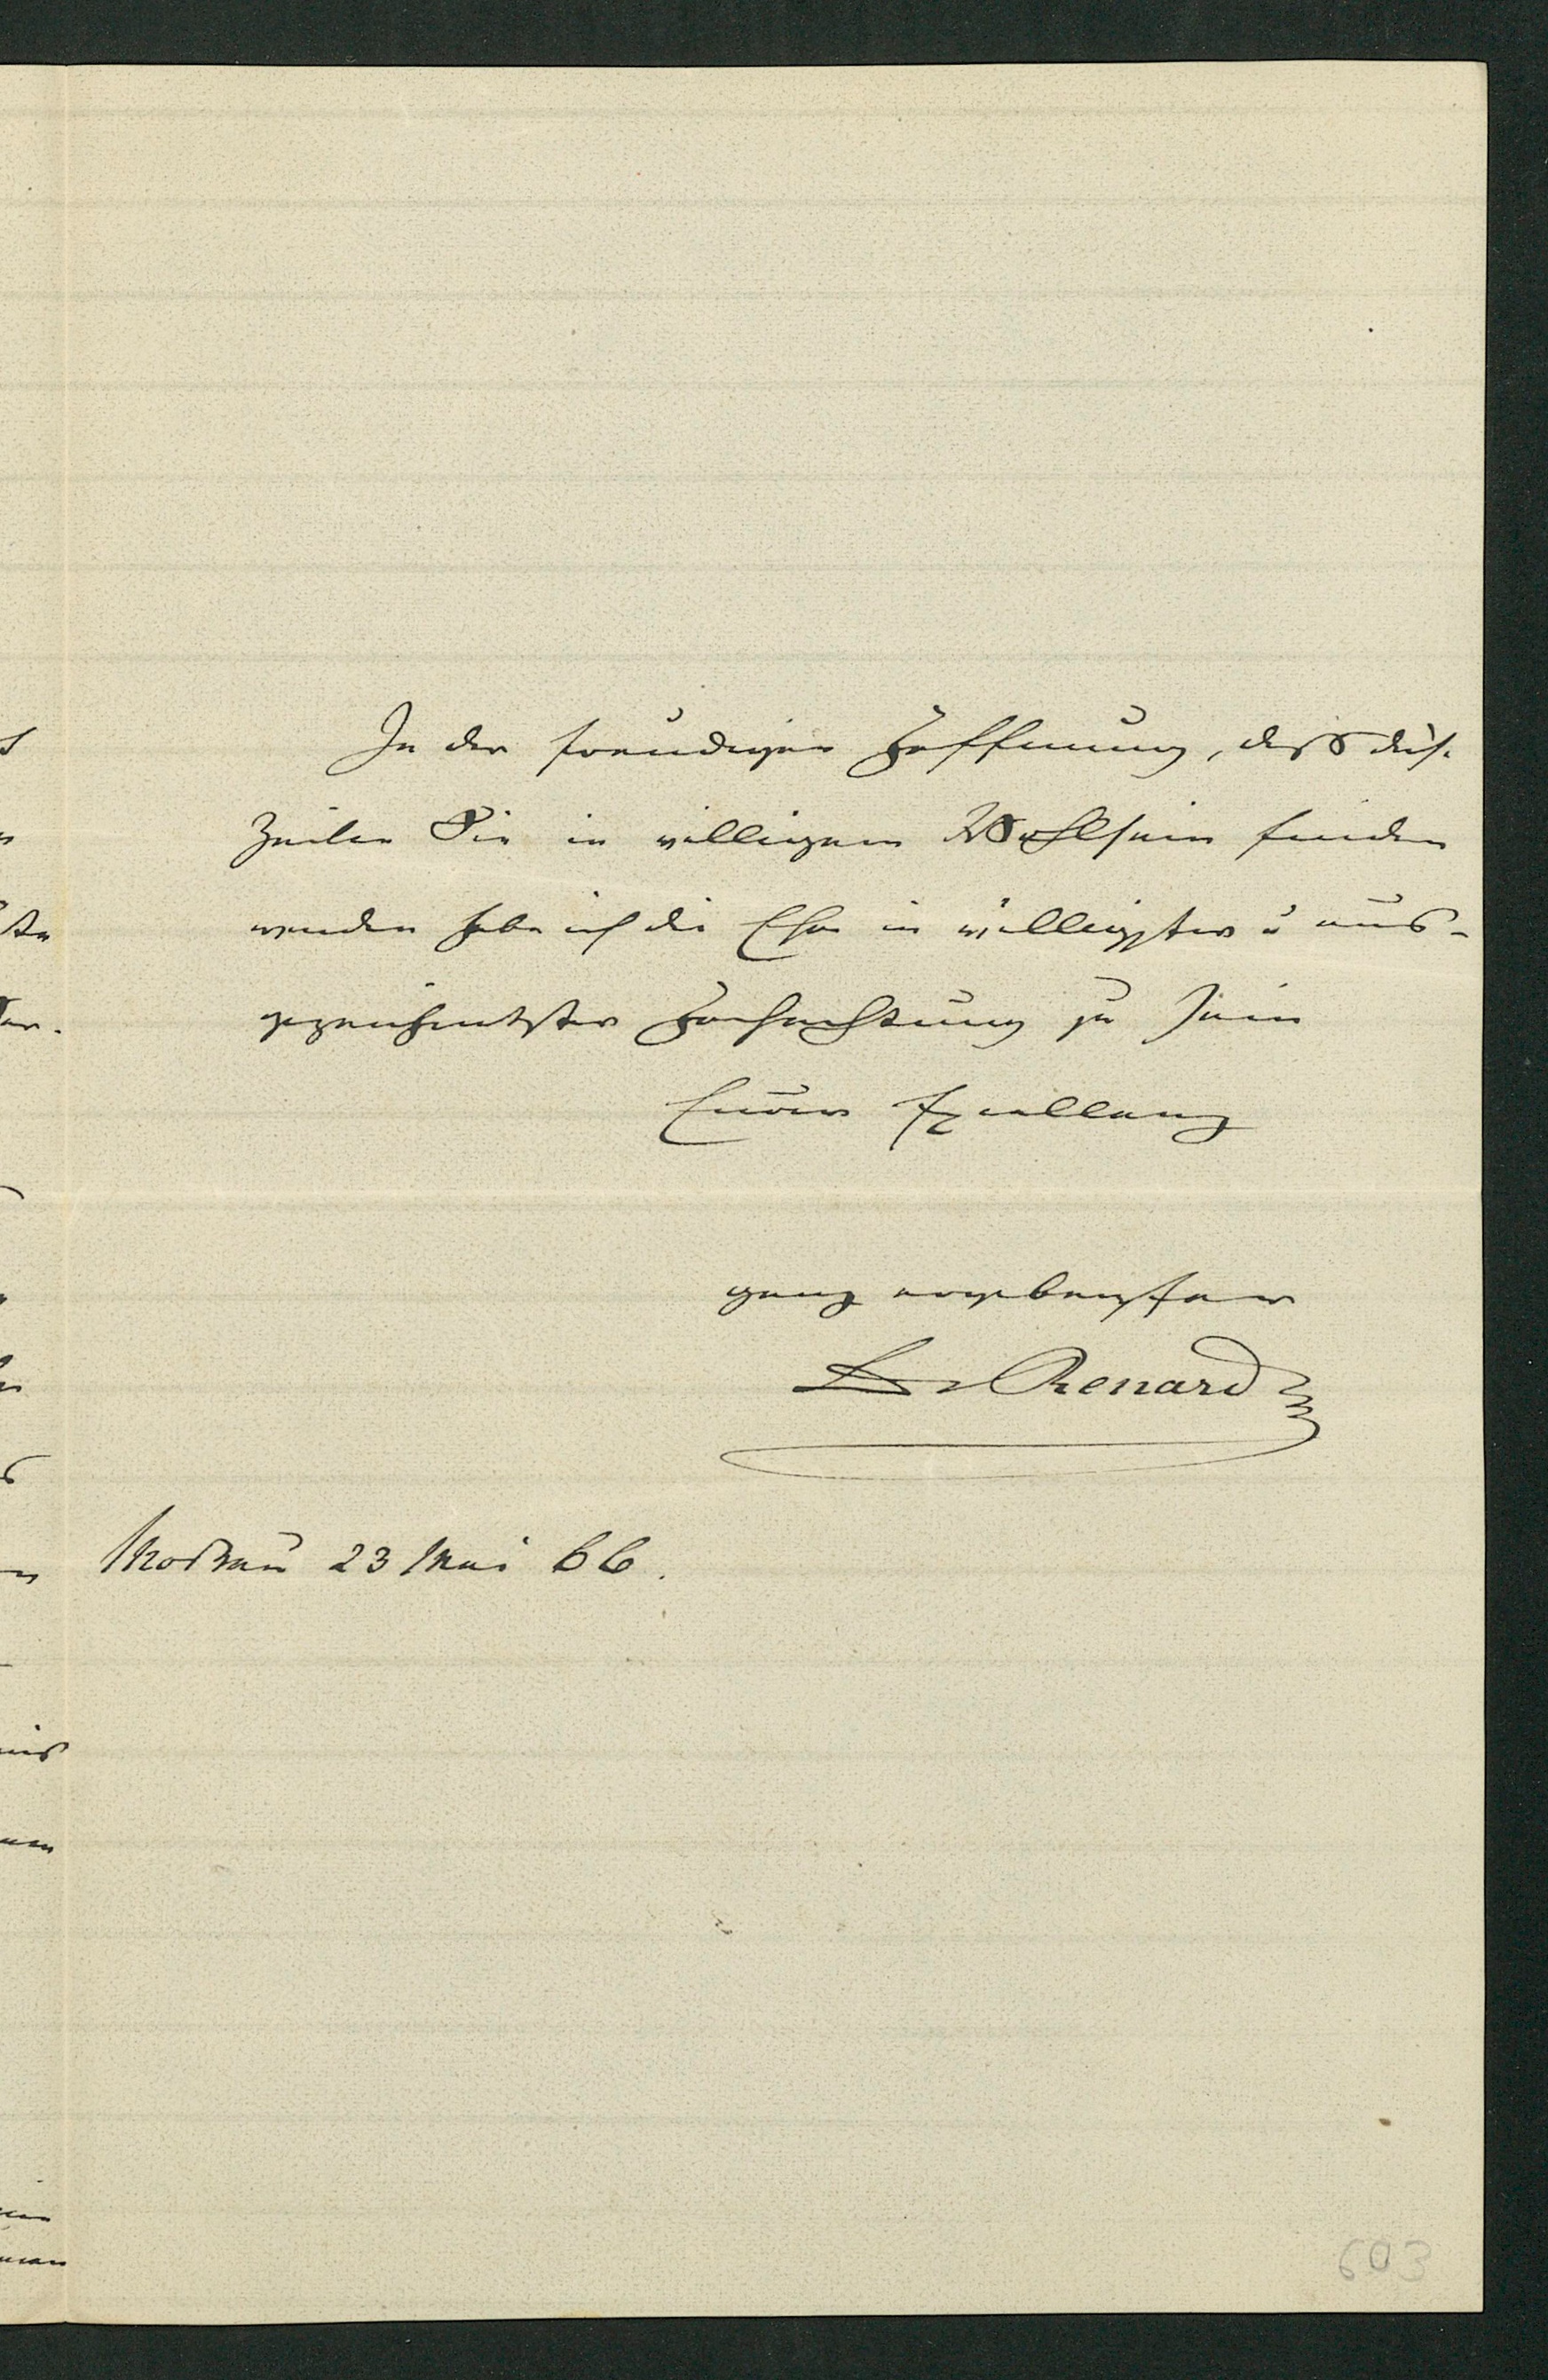 In der freudigen Hoffnung, daß diese
Zeilen Sie in völligem Wohlsein finden
werden habe ich die Ehre in völligster u aus-
gezeichnetster Hochachtung zu sein
Euer Excellenz
ganz ergebenster
Dr Renard
Moskau 23 Mai 66.
603